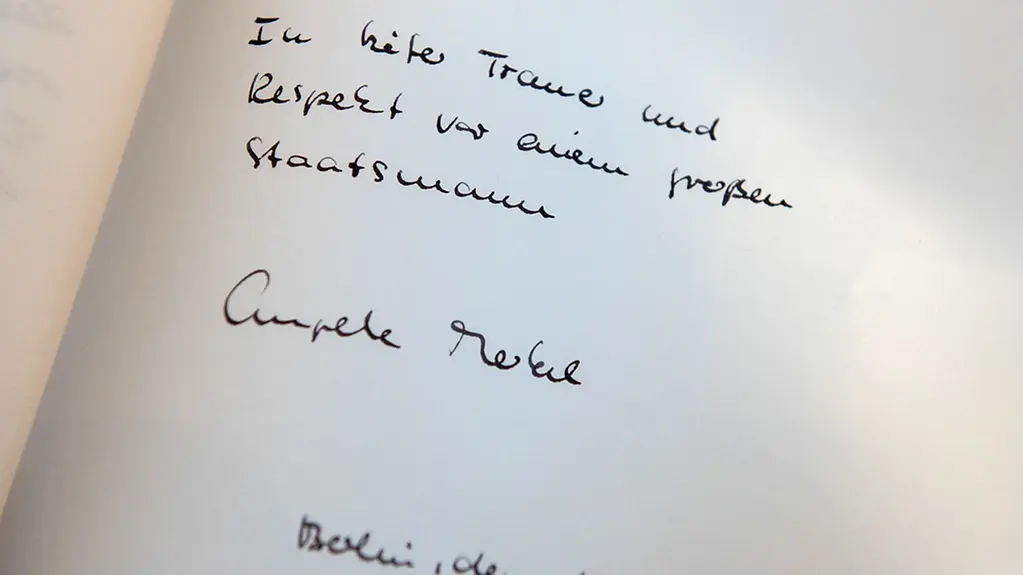 In tiefer Trauer und
Respekt vor einem großen
Staatsmann
Angela Merkel
Berlin, de